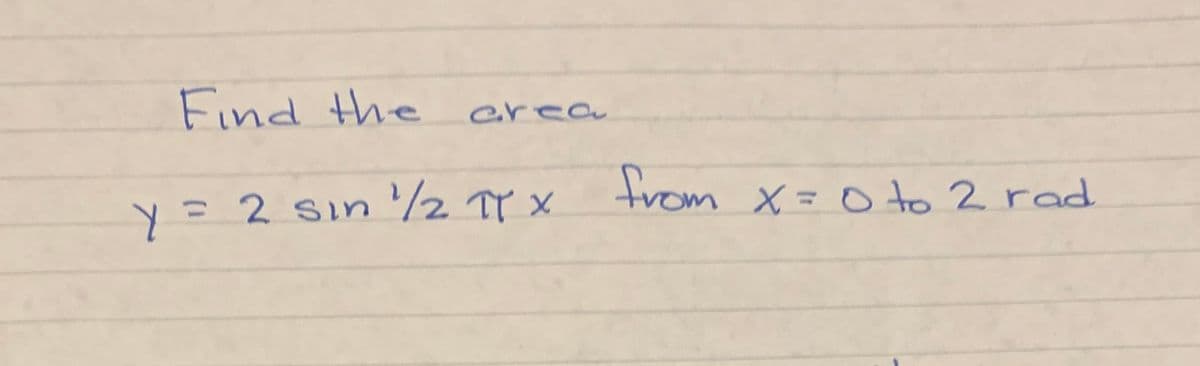 Find the area
y = 2 sin 1/2 π x from x = 0 to 2 rad